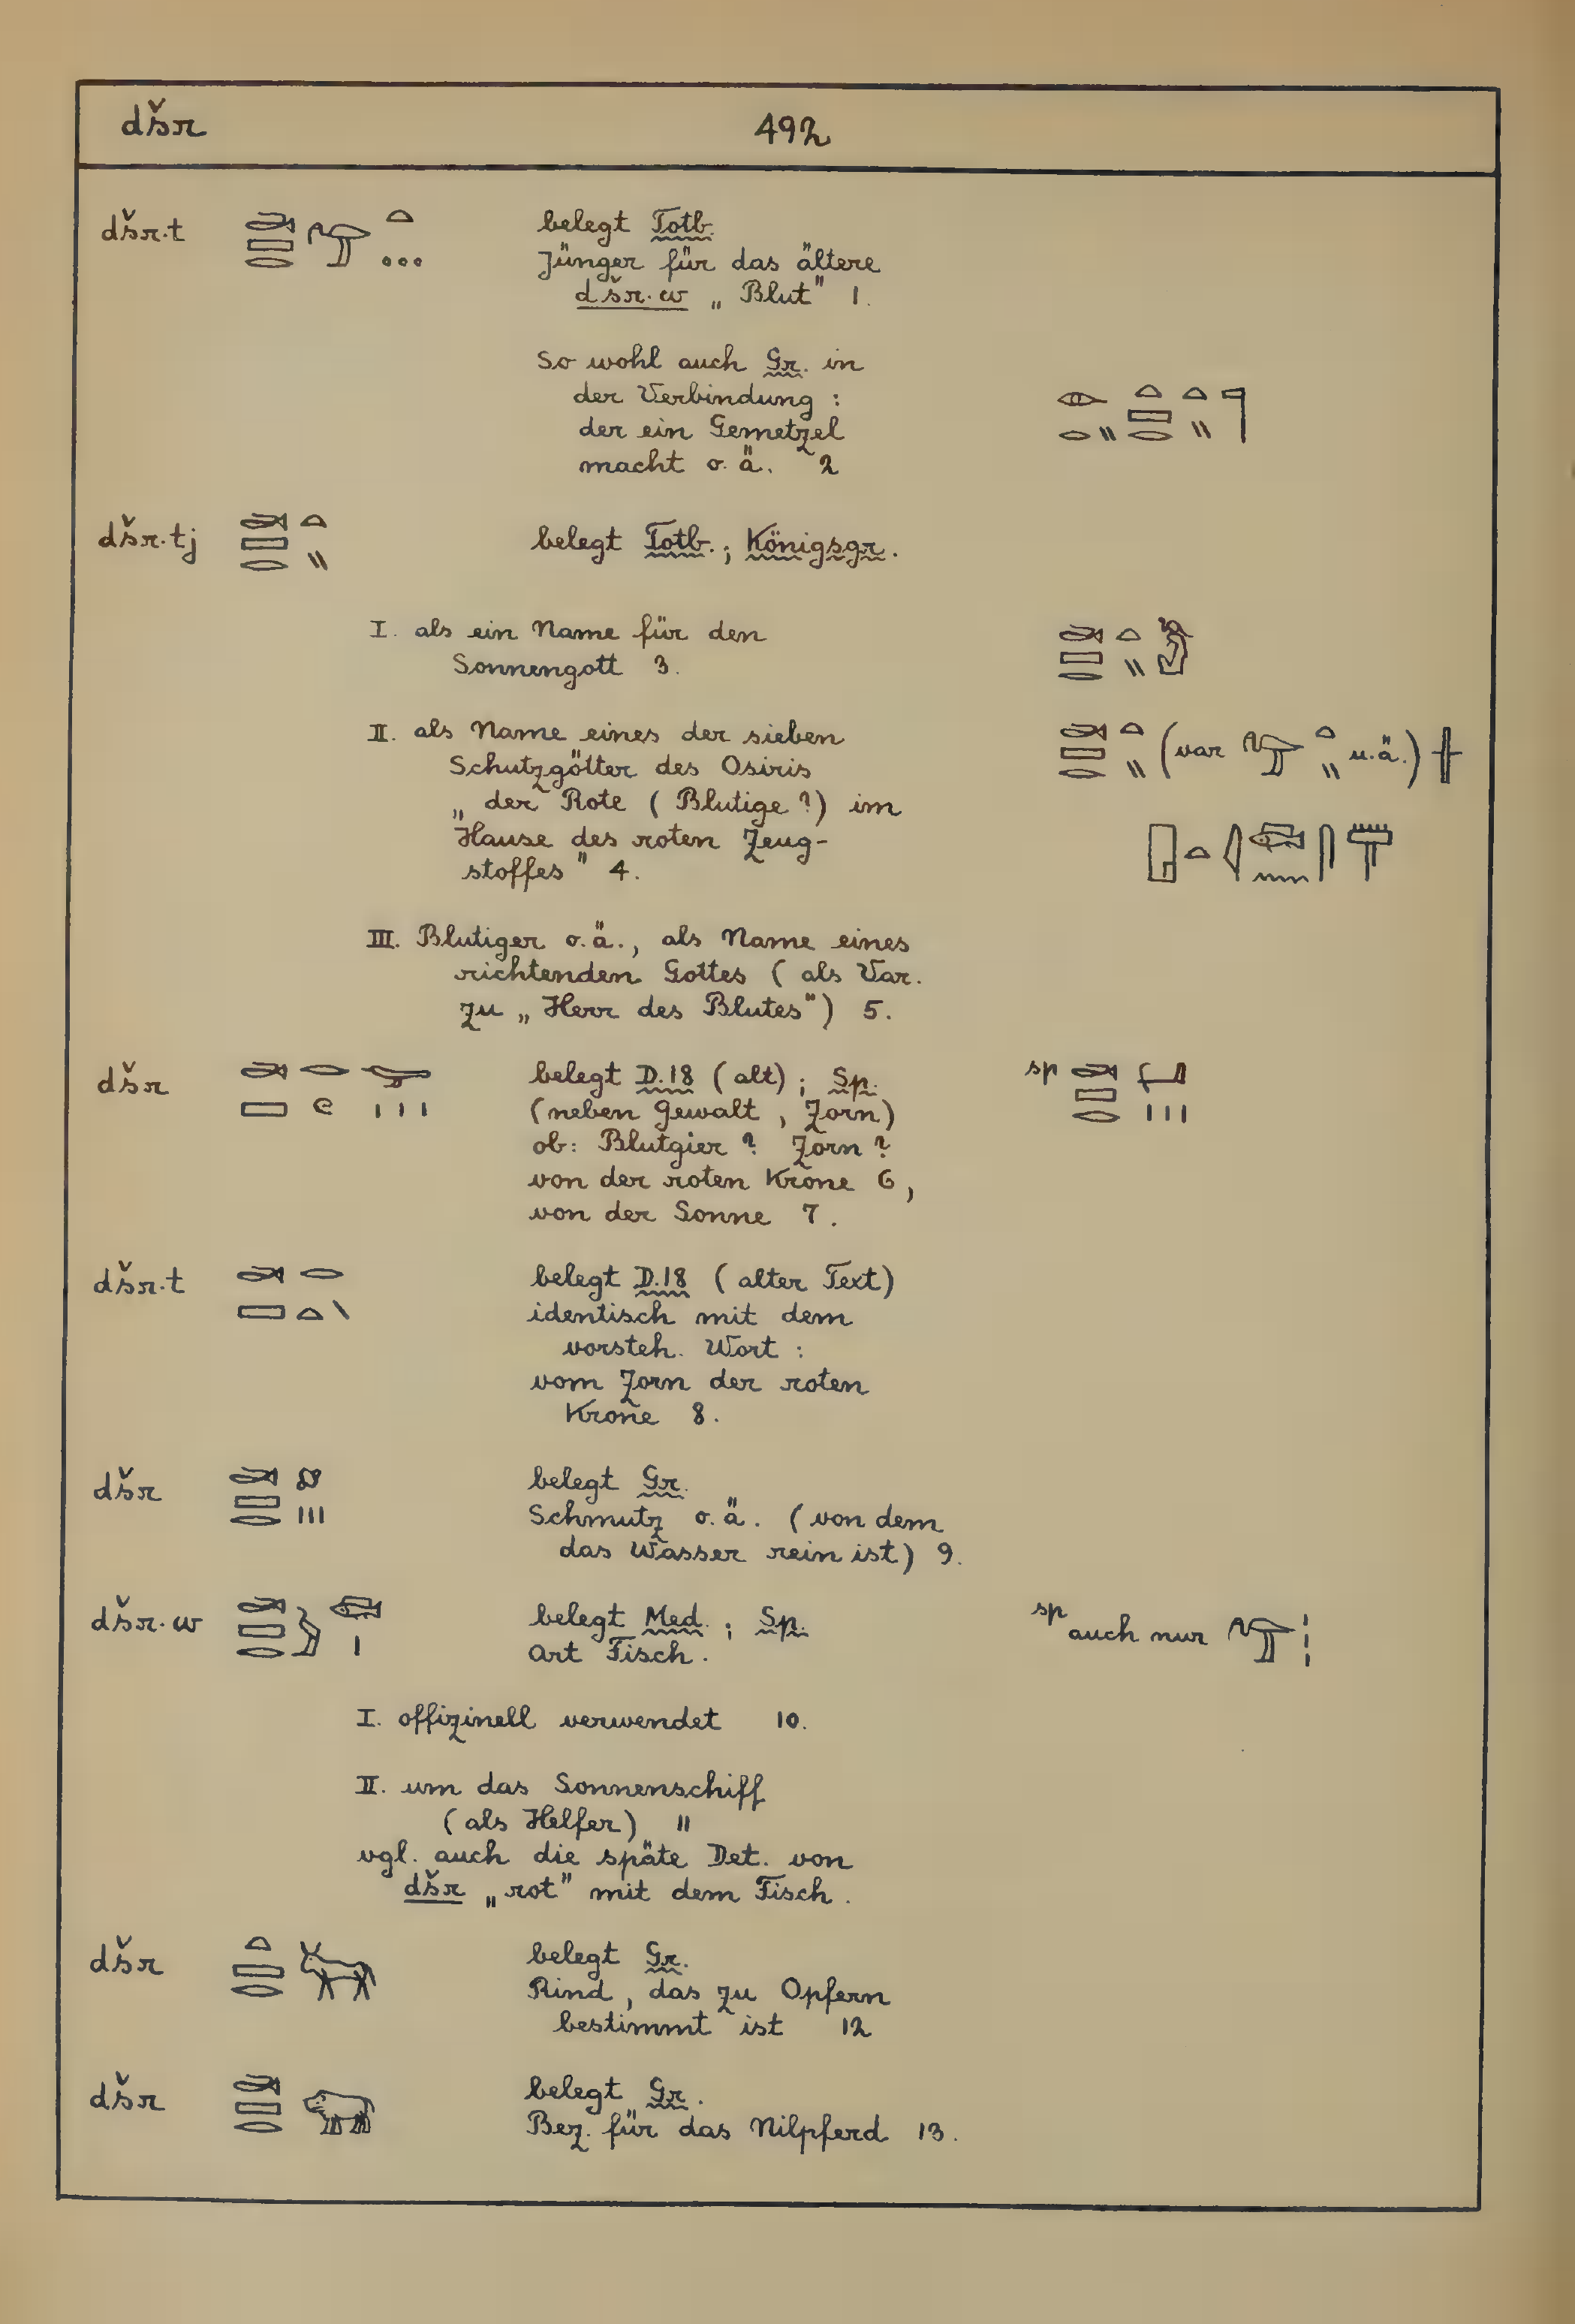 dšr 492
dšr·t belegt Totb.
Jünger für das ältere
dšr·w „Blut" 1.
So wohl auch Gr. in
der Verbindung :
der ein Gemetzel
macht o. ä. 2
dšr·tj belegt Totb.; Königsgr.
I. als ein Name für den
Sonnengott 3.
II. als Name eines der sieben (var u.ä.)
Schutzgötter des Osiris
„der Rote (Blutige?) im
Hause des roten Zeug-
stoffes" 4.
III. Blutiger o.ä., als Name eines
richtenden Gottes (als Var.
zu „Herr des Blutes") 5.
dšr belegt D.18 (alt); Sp. sp
(neben Gewalt, Zorn)
ob: Blutgier? Zorn?
von der roten Krone 6,
von der Sonne 7.
dšr·t belegt D.18 (alter Text)
identisch mit dem
vorsteh. Wort :
vom Zorn der roten
Krone 8.
dšr belegt Gr.
Schmutz o.ä. (von dem
das Wasser rein ist) 9.
dšr·w belegt Med.; Sp. sp auch nur
Art Fisch.
I. offizinell verwendet 10.
II. um das Sonnenschiff
(als Helfer) 11
vgl. auch die späte Det. von
dšr „rot" mit dem Fisch.
dšr belegt Gr.
Rind, das zu Opfern
bestimmt ist 12
dšr belegt Gr.
Bez. für das Nilpferd 13.